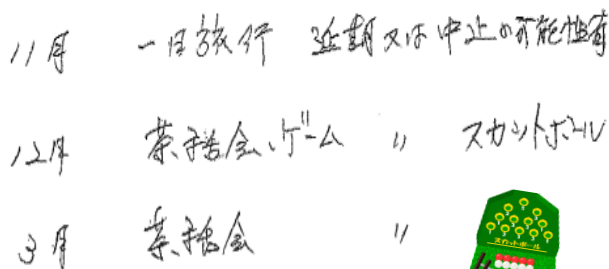 11月 一日旅行 延期又は中止の可能性有
12月 茶話会、ゲーム 〃 スカットボール
3月 茶話会 〃
スカットボール